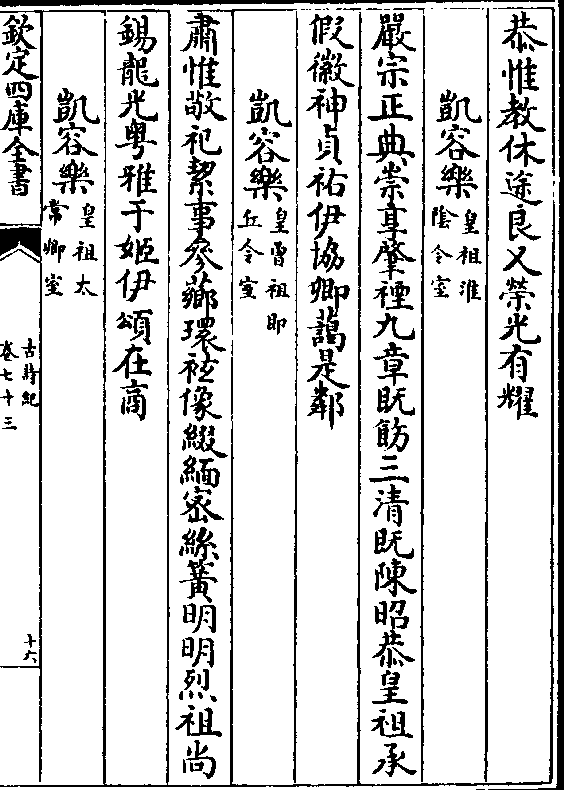 恭惟教休途良乂榮光有耀
凱容樂皇祖淮陰令室
嚴宗正典崇享肇禋九章旣飭三清旣陳昭恭皇祖承
假徽神貞祐伊協卿藹是鄰
凱容樂皇曾祖即丘令室
肅惟敬祀絜事參薌環祛像綴緬宻絲簧明明烈祖尚
錫龍光粤雅于姬伊頌在商
凱容樂皇祖太常卿室
欽定四庫全書
古詩紀
卷七十三
十六